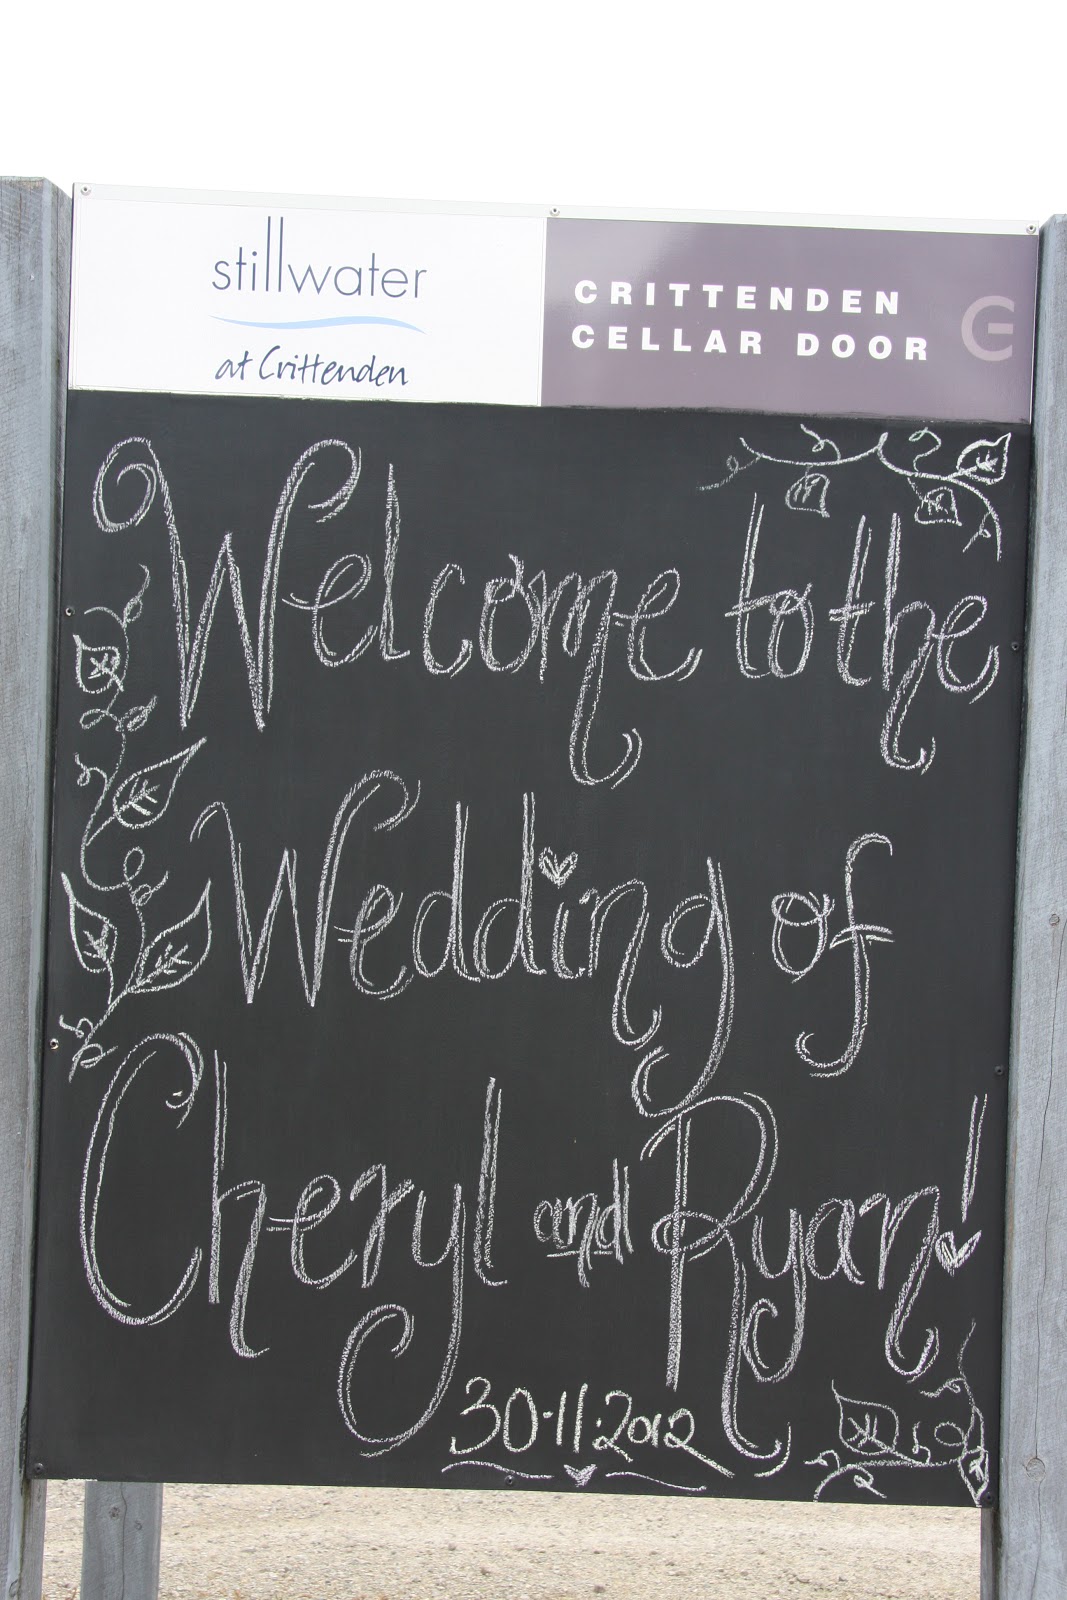 stillwater
at Crittenden
CRITTENDEN
CELLAR DOOR
Welcome to the
Wedding of
Cheryl and Ryan!
30·11·2012